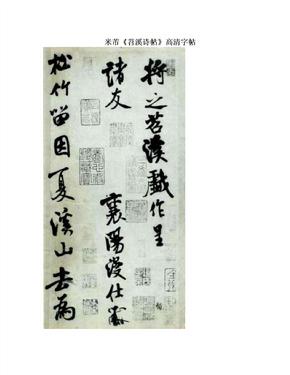 米芾《苕溪诗帖》高清字帖
将之苕溪戏作呈
诸友
襄阳漫仕黻
松竹留因夏溪山去为